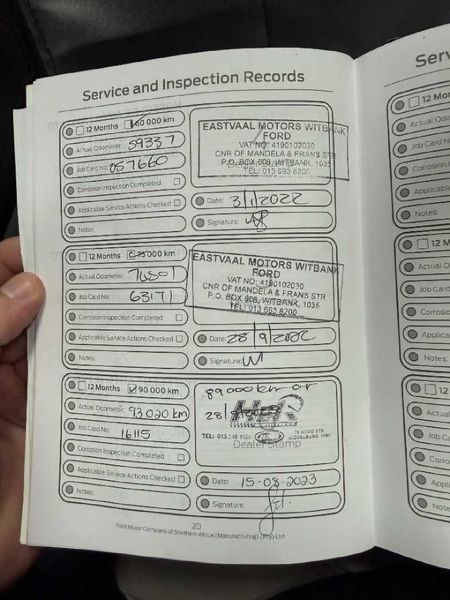 Service and Inspection Records
12 Months 60 000 km
Actual Odometer: 59337
Job Card No: 057660
Corrosion Inspection Completed
Applicable Service Actions Checked
Notes:
EASTVAAL MOTORS WITBANK
FORD
VAT NO: 4190102030
CNR OF MANDELA & FRANS STR
P.O. BOX 608, WITBANK, 1035
TEL: 013 693 8200
Date: 3/1/2022
Signature:
12 Months 75 000 km
Actual Odometer:
Job Card No: 63171
Corrosion Inspection Completed
Applicable Service Actions Checked
Notes:
EASTVAAL MOTORS WITBANK
FORD
VAT NO: 4190102030
CNR OF MANDELA & FRANS STR
P.O. BOX 608, WITBANK, 1035
TEL: 013 693 8200
Date: 28/9/2022
Signature:
12 Months 90 000 km
Actual Odometer: 93020 km
Job Card No: 16115
Corrosion Inspection Completed
Applicable Service Actions Checked
Notes:
89000km or
TEL: 013
Dealer Stamp
Date: 15-08-2023
Signature:
20
Ford Motor Company of Southern Africa (Manufacturing) (Pty) Ltd
Serv
12 Mon
Actual Odo
Job Card N
Corrosion
Applicabl
Notes:
12 M
Actual O
Job Card
Corrosi
Applica
Notes:
12
Actual
Job C
Corro
App
Note